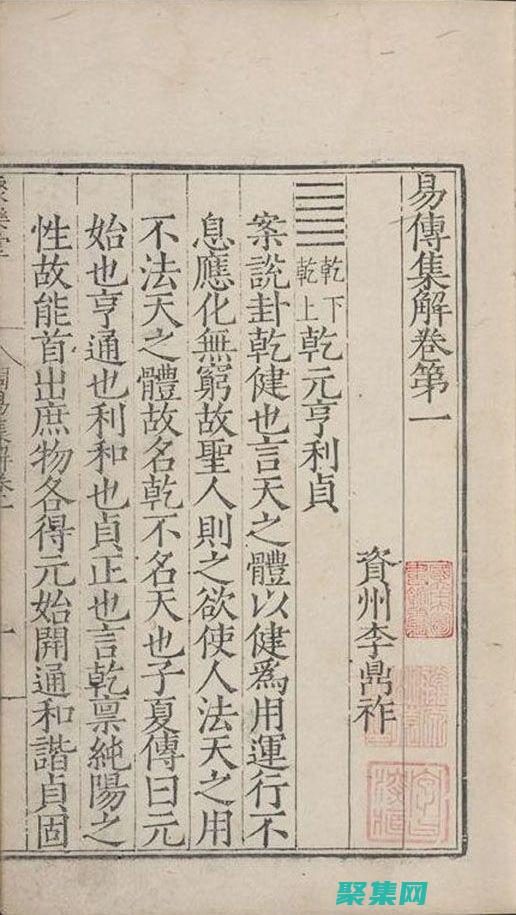 易傳集解卷第一
資州李鼎祚
乾下
乾上
乾元亨利貞
案說卦乾健也言天之體以健爲用運行不
息應化無窮故聖人則之欲使人法天之用
不法天之體故名乾不名天也子夏傳曰元
始也亨通也利和也貞正也言乾禀純陽之
性故能首出庶物各得元始開通和諧貞固
聚集网